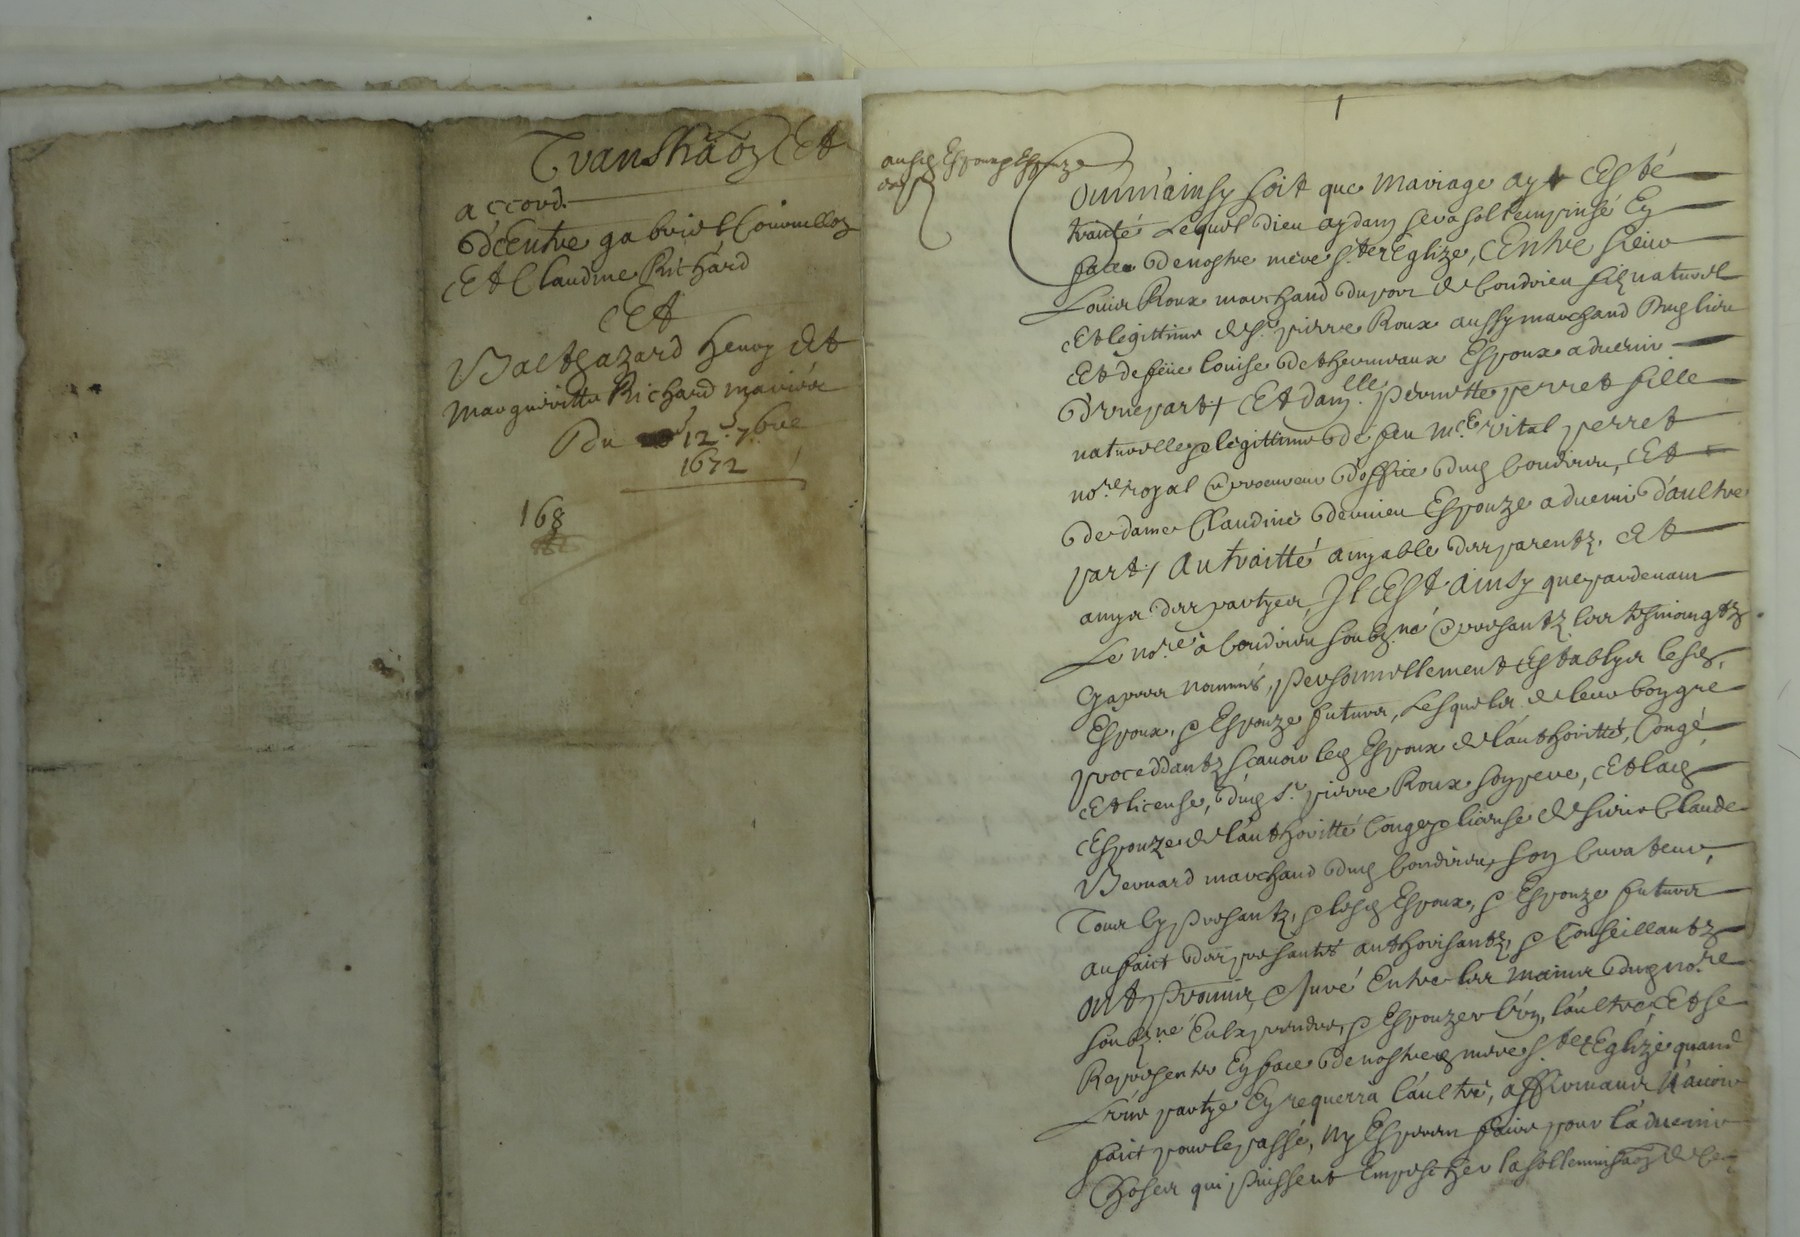 Transhaōn Et
accord
d'Entre gabriel Couruelloz
Et Claudine Richard
Et
Balthazard henry Et
Margueritte Richard mariés
Du 12e 7bre
1672
168
1
ausd Espoux p Espouze
Comm'ainsy soit que Mariage ayt Esté
traité Lequel Dieu aydam sera sollempnisé En
face de nostre mere Ste Eglize, Entre sieur
Louis Roux marchand du port de Condrieu filz naturel
Et legittime de sr. pierre Roux aussy marchand dud lieu
Et de feüe louise de thermeaux Espoux aduenir
D'vne part / Et damlle. pernette perret fille
naturelle p legittime de feu Me vital perret
nore. royal p procureur d'office dud Condrieu, Et
de dame Claudine dernieu Espouze aduenir D'aultre
part / Au traitté amyable des parentz, Et
amys des partyes, Il Est Ainsy que pardeuant
Le nore. à Condrieu soubzné p presantz les tesmoingtz
Cy apres nommés, Personnellement Establys lesd,
Espoux, p Espouze futurs, Lesquels de leur bon gré
proceddantz scauoir led Espoux de l'authoritté, Congé,
Et license, dud sr. pierre Roux son pere, Et lad
Espouze de l'authoritté Conge p license de sieur Claude
Bernard marchand dud Condrieu, son Curateur,
Tous Cy presantz, p lesd Espoux, p Espouze futurs
au faict des presantes authorisantz, p Conseillantz
Ont Promis, p Juré Entre les mains dud nore
soubzné Eulx prendre, p Espouzer l'vn, l'aultre, Et se
Representer En face de nostred mere Ste Eglize quand
L'vne partye En requerra l'aultre, affirmants N'auoir
faict pour le passé, Ny Esperer faire pour l'aduenir
Choses qui puissent Empescher la sollemnisaōn de Ce